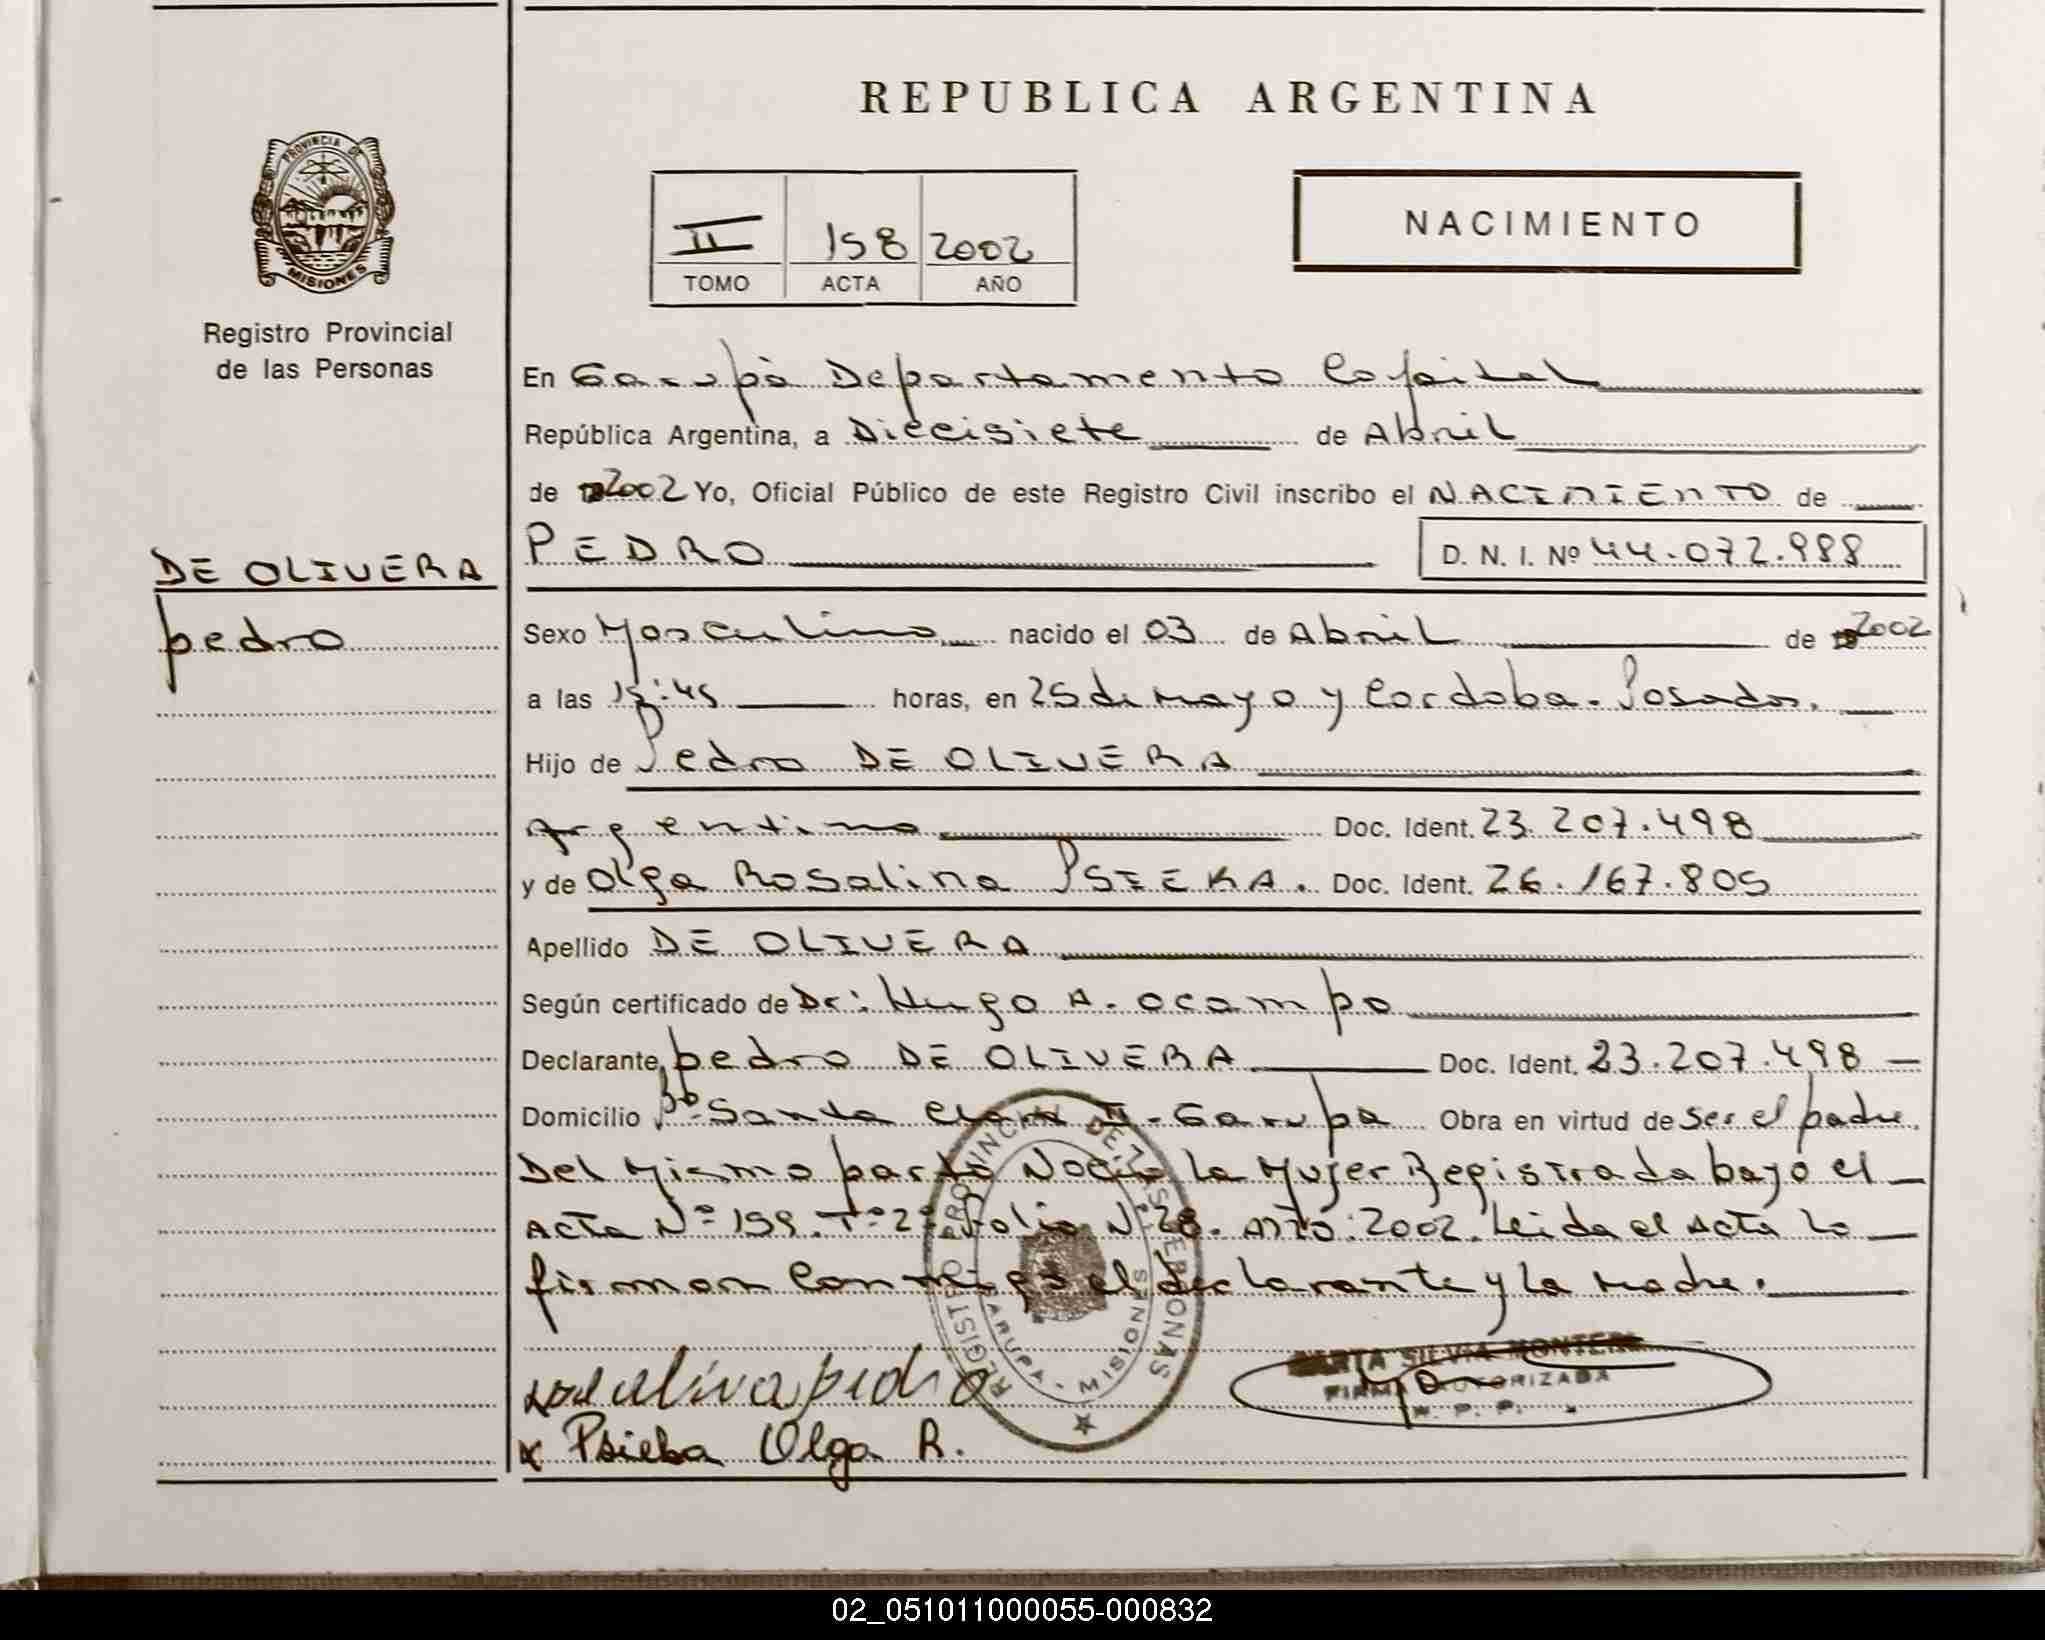 REPUBLICA ARGENTINA
PROVINCIA DE
MISIONES
Registro Provincial
de las Personas
II 158 2002
TOMO ACTA AÑO
NACIMIENTO
En Garupà Departamento Capital
República Argentina, a Diecisiete de Abril
de 2002 Yo, Oficial Público de este Registro Civil inscribo el NACIMIENTO de
DE OLIVERA
pedro
PEDRO
D. N. I. Nº 44.072.988
Sexo Masculino nacido el 03 de Abril de 2002
a las :45 horas, en 25 de Mayo y Cordoba. Posadas.
Hijo de Pedro DE OLIVERA
Argentino Doc. Ident. 23.207.498
y de Olga Rosalina Doc. Ident. 26.167.805
Apellido DE OLIVERA
Según certificado de Dr: Hugo A. Ocampo
Declarante, pedro DE OLIVERA Doc. Ident. 23.207.498
Domicilio Bº Santa Clara II - Garupa Obra en virtud de Ser el padre.
Del Mismo parto Nació La Mujer Registrada bajo el
Acta Nº 159. Tº 2º folio Nº 28. AÑO: 2002. Leida el Acta Lo
firman Conmigo el declarante y La Madre.
REGISTRO PROVINCIAL DE LAS PERSONAS
GARUPA - MISIONES
SILVIA
FIRMA AUTORIZADA
R. P. P.
pedro
Olga R.
02_051011000055-000832